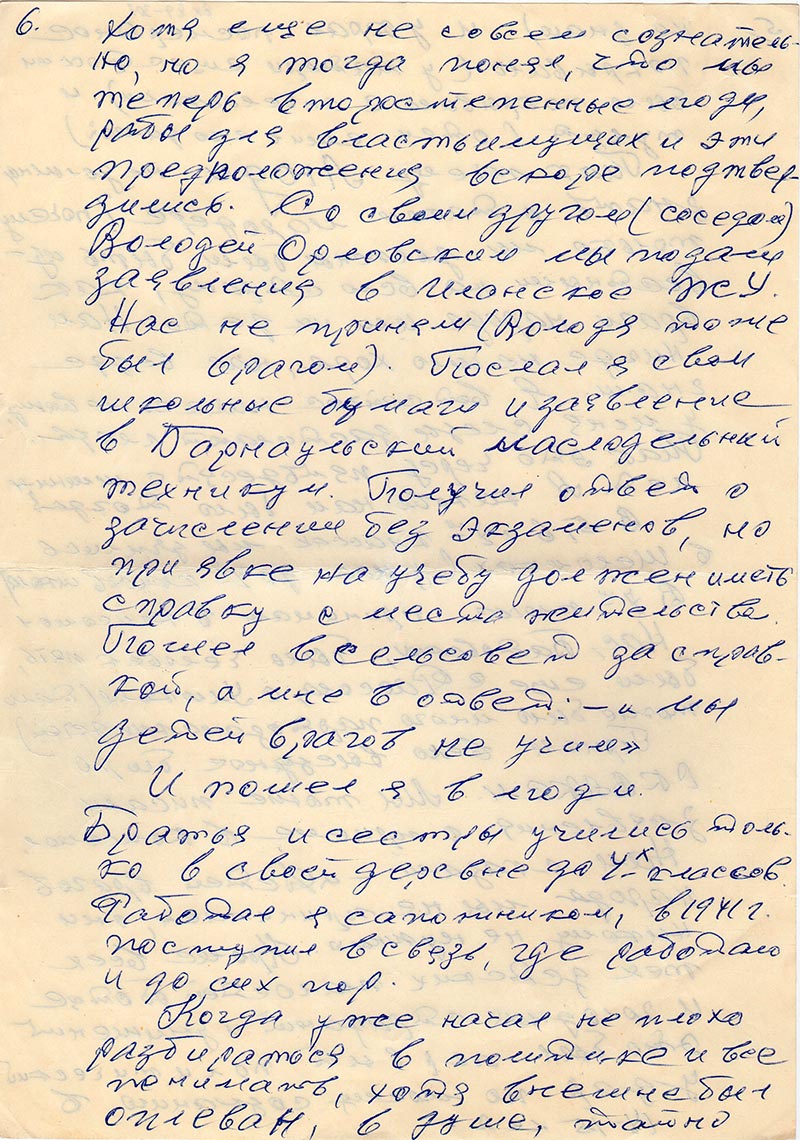 6. Хотя еще не совсем сознатель-
но, но я тогда понял, что мы
теперь второстепенные люди,
рабы для властьимущих и эти
предположения вскоре подтвер-
дились. Со своим другом (соседом)
Володей Орловским мы подали
заявления в Иланское ЖУ.
Нас не приняли (Володя тоже
был врагом). Послал я свои
школьные бумаги и заявление
в Барнаульский маслодельный
техникум. Получил ответ о
зачислении без экзаменов, но
при явке на учебу должен иметь
справку с места жительства.
Пошел в сельсовет за справ-
кой, а мне в ответ: – „ мы
детей врагов не учим"
И пошел я в люди.
Братья и сестры учились толь-
ко в своей деревне до 4-х классов.
Работал я сапожником, в 1941 г.
поступил в связь, где работаю
и до сих пор.
Когда уже начал не плохо
разбираться в политике и все
понимать, хотя внешне был
оплеван, в душе, тайно